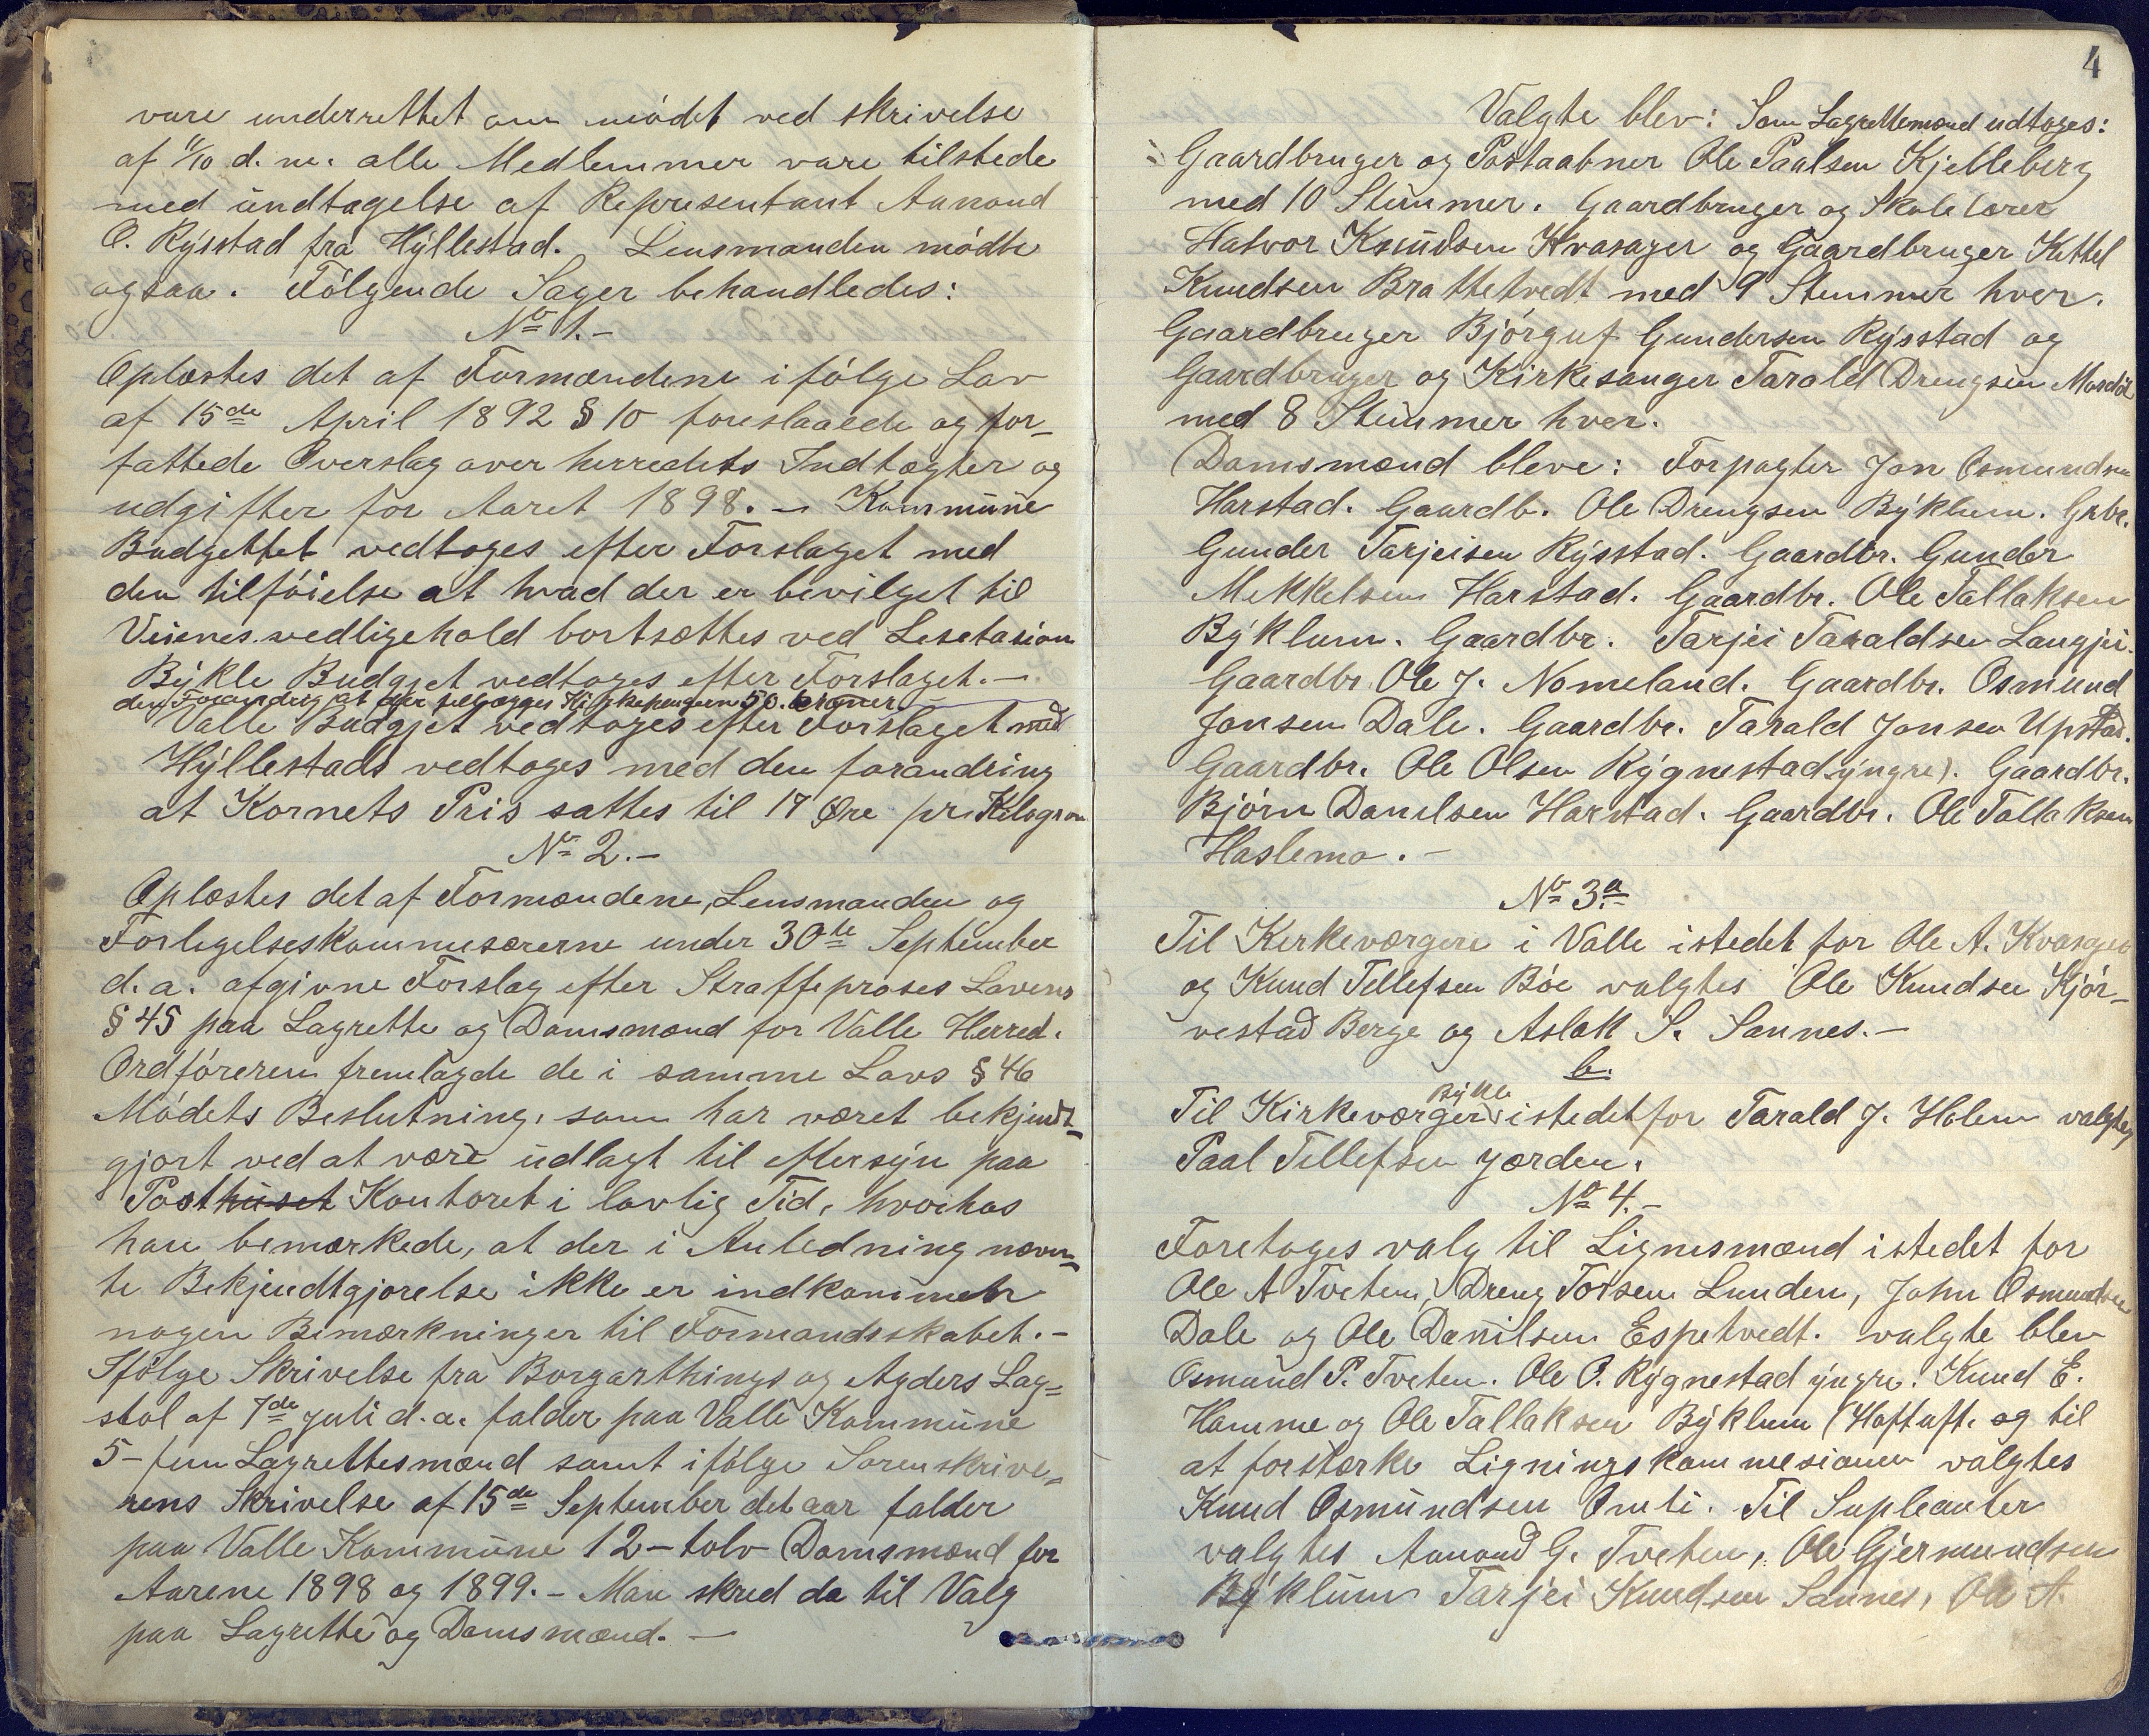 vare underrettet om mödet ved skrivelse
af 11/10 d. m. alle Medlemmer vare tilstede
med undtagelse af Repræsentant Aanond
O. Rysstad fra Hyllestad. Lensmanden mödte
ogsaa. Fölgende Sager behandledes:
No 1.-
Oplæstes det af Formændene i fölge Lov
af 15de April 1892 § 10 foreslaaede og for-
fattede Overslag over herredets Indtægter og
udgifter for Aaret 1898. - Kommune
Budgettet vedtoges efter Forslaget med
den tilföielse at hvad der er bevilget til
Veienes vedligehold bortsættes ved Lesetasion
Bykle Budgjet vedtoges efter Forslaget. -
den Forandring at der tillægges 50. kroner
Valle Budgjet vedtoges efter Forslaget med
Hyllestads vedtoges med den forandring
at Kornets Pris sattes til 17 Øre pr. Kilogram
No 2.-
Oplæstes det af Formændene, Lensmanden og
Forligelseskommisærerne under 30te September
d. a. afgivne Forslag efter Straffeproses Lovens
§ 45 paa Lagrette og Domsmænd for Valle Herred.
Ordföreren fremlagde de i samme Lovs § 46
Mödets Beslutning, som har været bekjendt-
gjort ved at være udlagt til eftersyn paa
Posthuset Kontoret i lovlig Tid, hvorhos
han bemærkede, at der i Anledning nævn-
te Bekjendtgjørelse ikke er indkommen
nogen Bemærkninger til Formandsskabet. -
Ifölge Skrivelse fra Borgarthings og Agders Lag-
stol af 7de juli d. a. falder paa Valle Kommune
5 - fem Lagrettesmænd samt ifölge Sorenskrive-
rens Skrivelse af 15de September det aar falder
paa Valle Kommune 12 - tolv Domsmænd for
Aarene 1898 og 1899. - Man skred da til Valg
paa Lagrette og Domsmænd. -
4
Valgte blev: Som Lagrettemænd udtoges:
Gaardbruger og Postaabner Ole Paalsen Kjelleberg
med 10 Stemmer. Gaardbruger og Skolelærer
Halvor Knudsen Kvasager og Gaardbruger Kittel
Knudsen Brottetvedt med 9 Stemmer hver.
Gaardbruger Bjórguf Gundersen Rysstad og
Gaardbruger og Kirkesanger Tarald Drengsen Mosdöl
med 8 Stemmer hver.
Domsmænd bleve: Forpagter Jon Osmundsen
Harstad. Gaardb. Ole Drengsen Byklum. Grbr.
Gunder Tarjeisen Rysstad. Gaardbr. Gunder
Mekkelsen Harstad. Gaardbr. Ole Tallaksen
Byklum. Gaardbr. Tarjei Taraldsen Langjei.
Gaardbr. Ole J. Nomeland. Gaardbr. Osmund
Jonsen Dale. Gaardbr. Tarald Jonsen Upstad.
Gaardbr. Ole Olsen Rygnestad yngre). Gaardbr.
Björn Danilsen Harstad. Gaardbr. Ole Tallaksen
Haslemo. -
No 3.a
Til Kerkeværgere i Valle istedet for Ole A. Kvasager
og Knud Tellefsen Böe valgtes Ole Knudsen Kjör-
vestad Berge og Aslak S. Sannes. -
b.
Bykle
Til Kirkeværger istedetfor Tarald J. Holen valgtes
Paal Tellefsen Jorden.
No 4.-
Foretoges valg til Lignesmænd istedet for
Ole A Tveten, Dreng Torsen Lunden, John Osmundsen
Dale og Ole Danilsen Espetvedt. valgte blev
Osmund P. Tveten. Ole O. Rygnestad yngre. Knud E.
Homme og Ole Tallaksen Byklum (Hoftuft. og til
at forstærke Ligningskommesionen valgtes
Knud Osmundsen Omli. Til Supleanter
valgtes Aanond G. Tveten, Ole Gjermundsen
Byklum Tarjei Knudsen Sannes, Ole A.